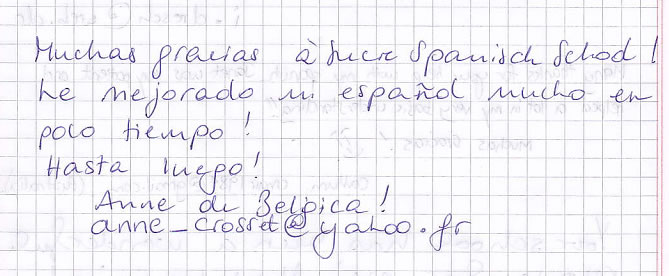 Muchas gracias à Sucre Spanisch School !
he mejorado mi español mucho en
poco tiempo !
Hasta luego !
Anne de Belgica !
anne_crosset@yahoo.fr